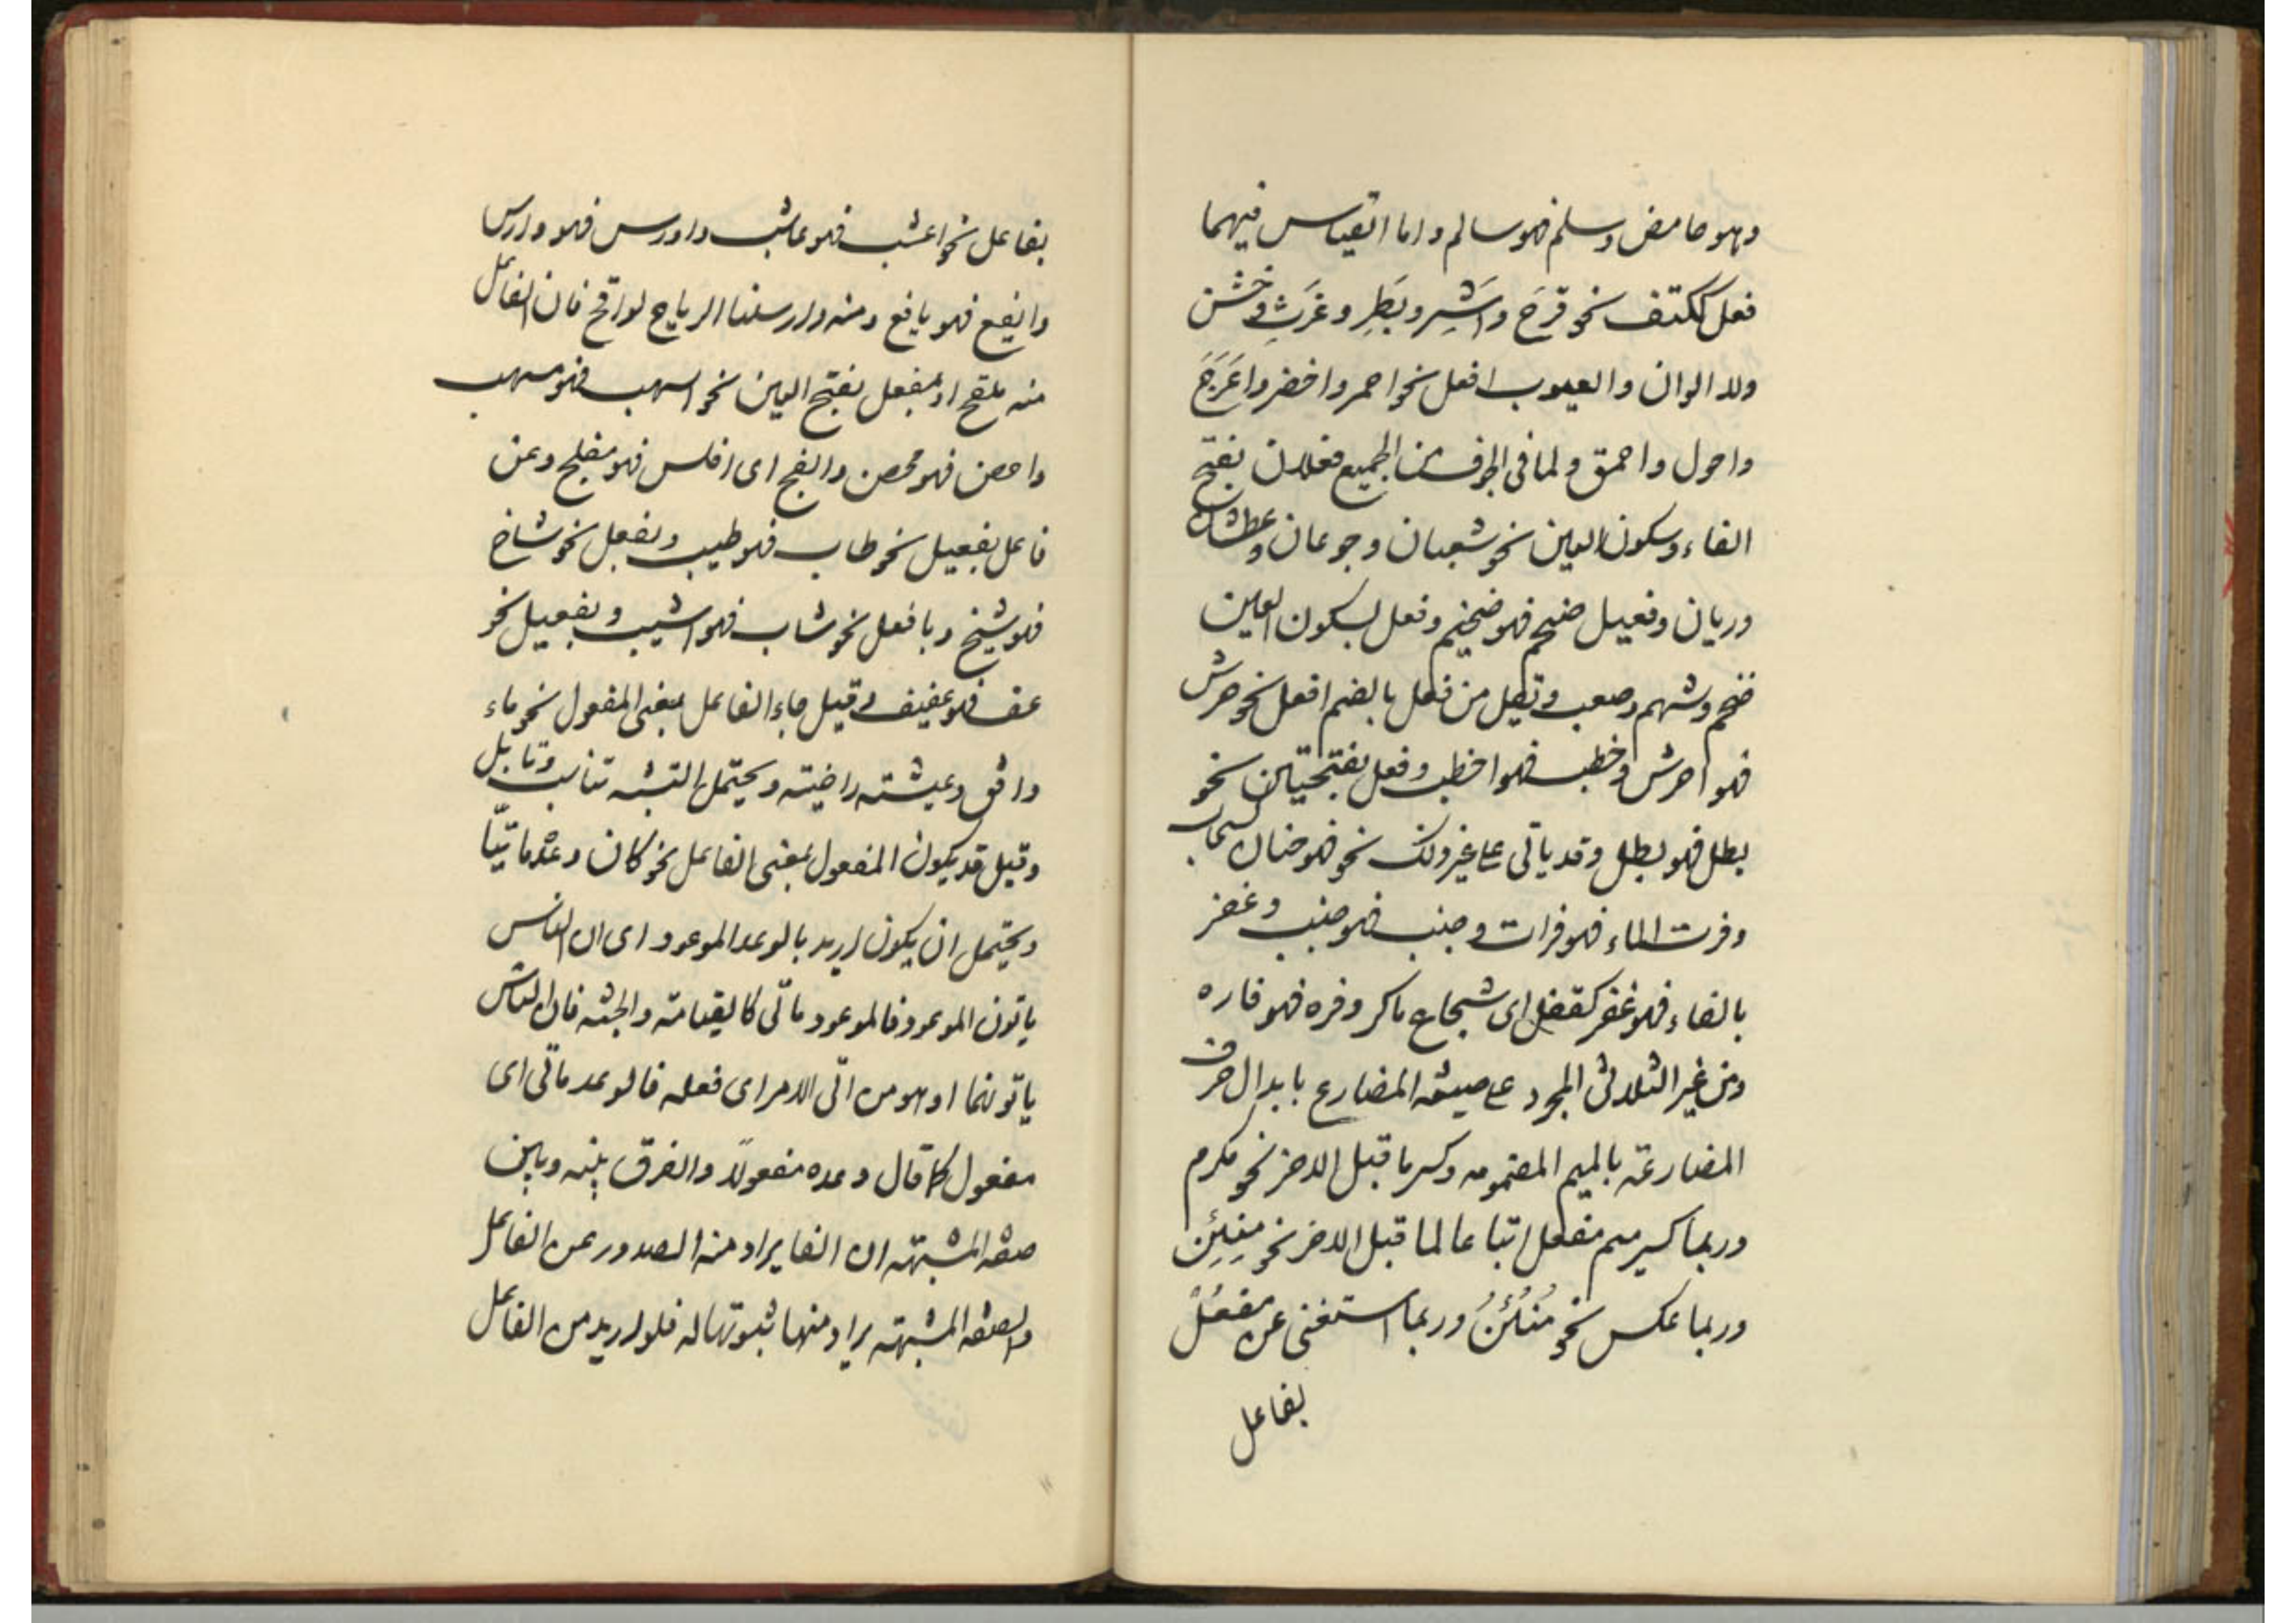 وهو حامض وسلم فهو سالم واما القياس فيهما
فعل ككتف نحو قرح واشِر وبَطِر وغَرِث وخشن
وللالوان والعيوب افعل نحو احمر واخضر واعَرَج
واحول واحمق ولما فى الجوف من الجميع فعلان بفتح
الفاء وسكون العين نحو شعبان وجوعان وعطشان
وريان وفعيل ضخم فهو ضخيم وفعل بسكون العين
ضخم وشهم وصعب وقيل من فعل بالضم افعل نحو حرش
فهو احرش وخطب فهو اخطب وفعل بفتحتين نحو
بطل فهو بطل وقد ياتى على غير ذلك نحو فهو
وفرت الماء فهو فرات وجنب فهو جنب وغفر
بالفاء فهو غفر كقفل اى شجاع ماكر وفره فهو فاره
ومن غير الثلاثى المجرد على صيغة المضارع بابدال حرف
المضارعة بالميم المضمومه وكسر ما قبل الاخر نحو مكرم
وربما كسر ميم مفعل اتباعا لما قبل الاخر نحو مِنتِن
وربما عكس نحو مُنتُنُ وربما استغنى عن مفعُلْ
بفاعل
بفاعل نحو اعشب فهو عاشب واورس فهو وارس
وايفع فهو يافع ومنه وارسلنا الرياح لواقح فان الفاعل
منه ملقح او بمفعل بفتح العين نحو اسهب فهو مسهب
واحصن فهو محصن والفج اى افلس فهو مفلج وعن
فاعل بفعيل نحو طاب فهو طيب وبفعل نحو شاخ
فهو شيخ وبافعل نحو شاب فهو اشيب وبفعيل نحو
عف فهو عفيف وقيل جاء الفاعل بمعنى المفعول نحو ماء
دافق وعيشة راضية ويحتمل النسبة
وقيل قد يكون المفعول بمعنى الفاعل نحو كان وعده ماتيّا
ويحتمل ان يكون اريد بالوعد الموعود اى ان الناس
ياتون الموعود فالموعود ماتى كالقيامة والجنة فان الناس
ياتونها او هو من اتى الامر اى فعله فالوعد ماتى اى
مفعول كما قال وعده مفعولاً والفرق بينه وبين
صفة المشبهة ان الفا يراد منه الصدور عن الفاعل
والصفة المشبهة يراد منها ثبوتها له فلو اريد من الفاعل